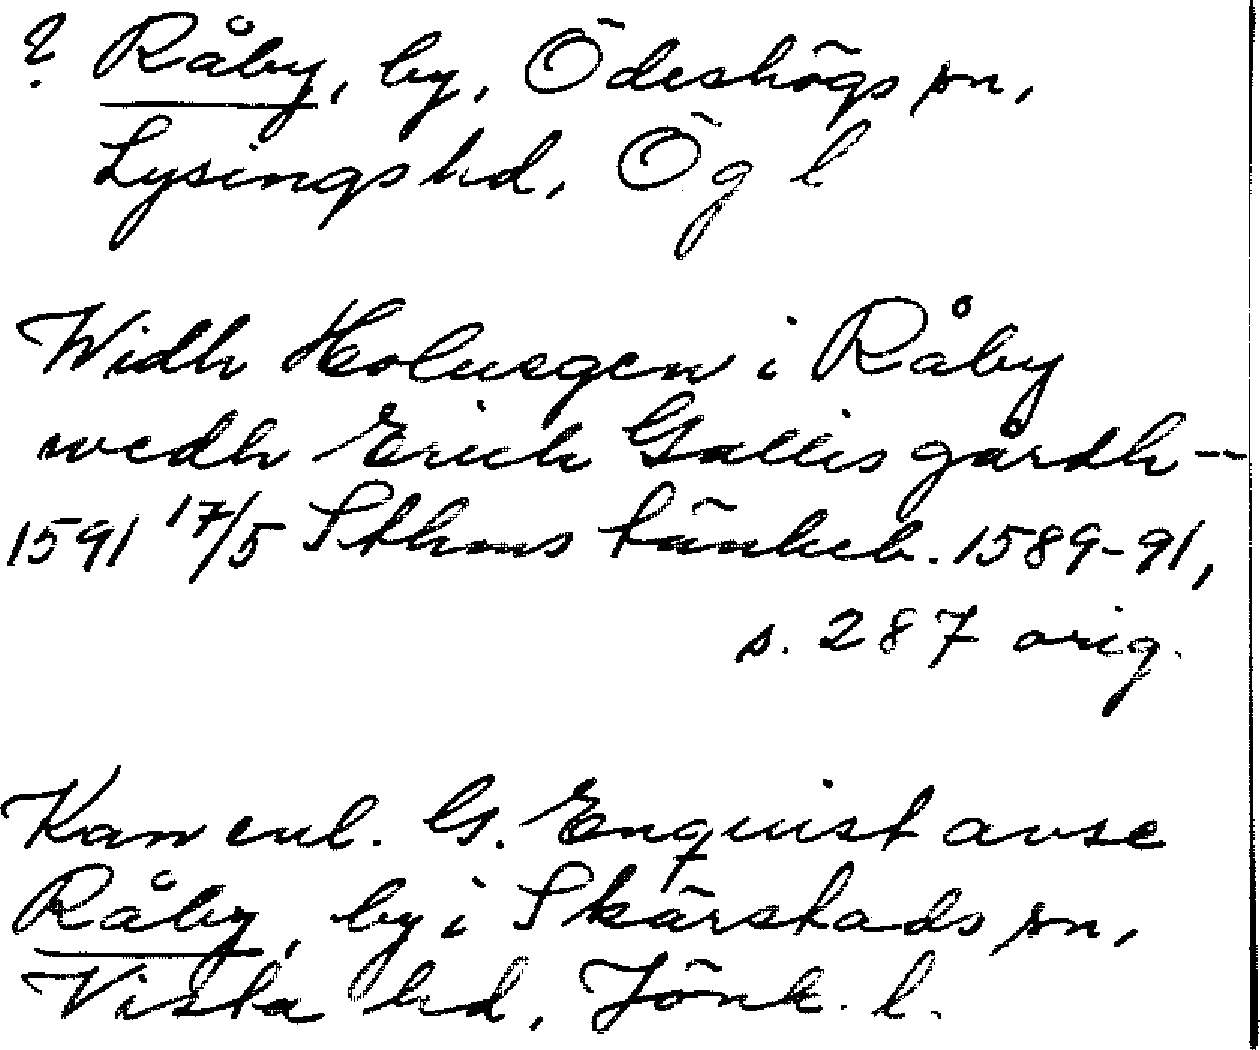 ? Råby, by, Ödeshögs sn,
Lysings hd, Ög l
Widh Holmsgen i Råby
wedh Erich Gallis gårdh --
1591 17/5 Sthms tänkeb. 1589-91,
s. 287 orig.
Kan enl. G. Enquist avse
Råby, by i Skärstads sn,
Vista hd, Jönk. l.